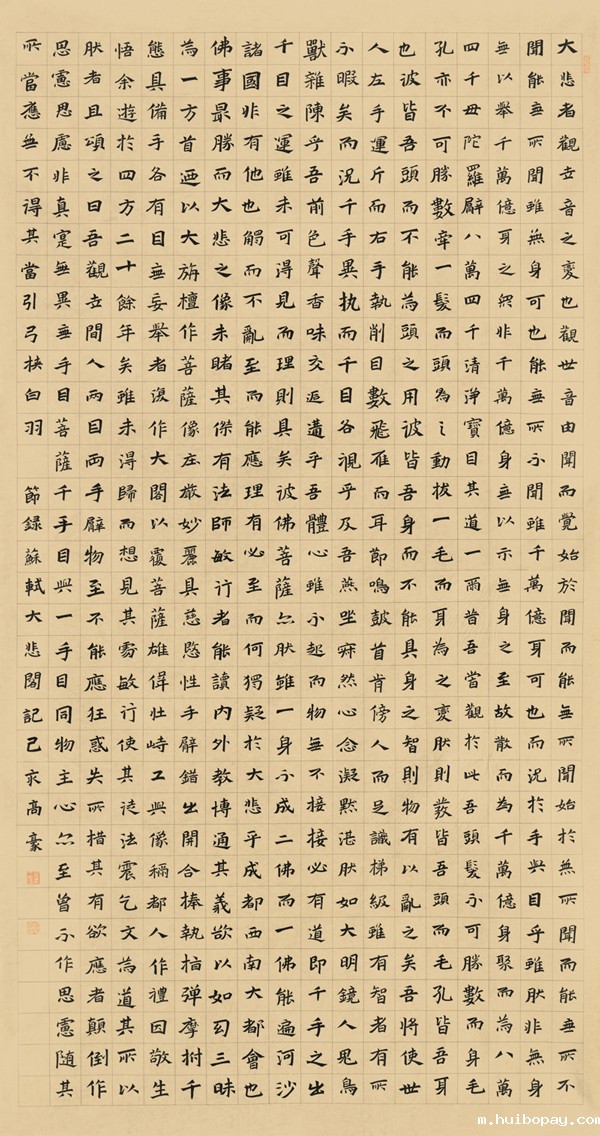 大悲者觀世音之變也觀世音由聞而覺始於聞而能無所聞始於無所聞而能無所不
聞能無所聞雖無身可也能無所不聞雖千萬億身可也而況於手與目乎雖然非無身
無以舉千萬億身之眾非千萬億身無以示無身之至故散而為千萬億身聚而為八萬
四千母陀羅臂八萬四千清淨寶目其道一爾昔吾嘗觀於此吾頭髮不可勝數而身毛
孔亦不可勝數牽一髮而頭為之動拔一毛而身為之變然則髮皆吾頭而毛孔皆吾身
也彼皆吾頭而不能為頭之用彼皆吾身而不能具身之智則物有以亂之矣吾將使世
人左手運斤而右手執削目數飛雁而耳節鳴鼓首肯傍人而足識梯級雖有智者有所
不暇矣而況千手異執而千目各視乎及吾燕坐寂然心念凝默湛然如大明鏡人鬼鳥
獸雜陳乎吾前色聲香味交返遘乎吾體心雖不起而物無不接接必有道即千手之出
千目之運雖未可得見而理則具矣彼佛菩薩亦然雖一身不成二佛而一佛能遍河沙
諸國非有他也觸而不亂至而能應理有必至而何獨疑於大悲乎成都西南大都會也
佛事最勝而大悲之像未睹其傑有法師敏行者能讀內外教博通其義欲以如幻三昧
為一方首迺以大旃檀作菩薩像莊嚴妙麗具慈愍性手臂錯出開合捧執指彈摩拊千
態具備手各有目無妄舉者復作大閣以覆菩薩雄偉壯峙工與像稱都人作禮因敬生
悟余遊於四方二十餘年矣雖未得歸而想見其處敏行使其徒法震乞文為道其所以
然者且頌之曰吾觀世間人兩目兩手臂物至不能應狂惑失所措其有欲應者顛倒作
思慮思慮非真寔無異無手目菩薩千手目與一手目同物主心亦至曾不作思慮隨其
所當應無不得其當引弓挾白羽 節錄蘇軾大悲閣記己亥高豪
m.huibopay.com